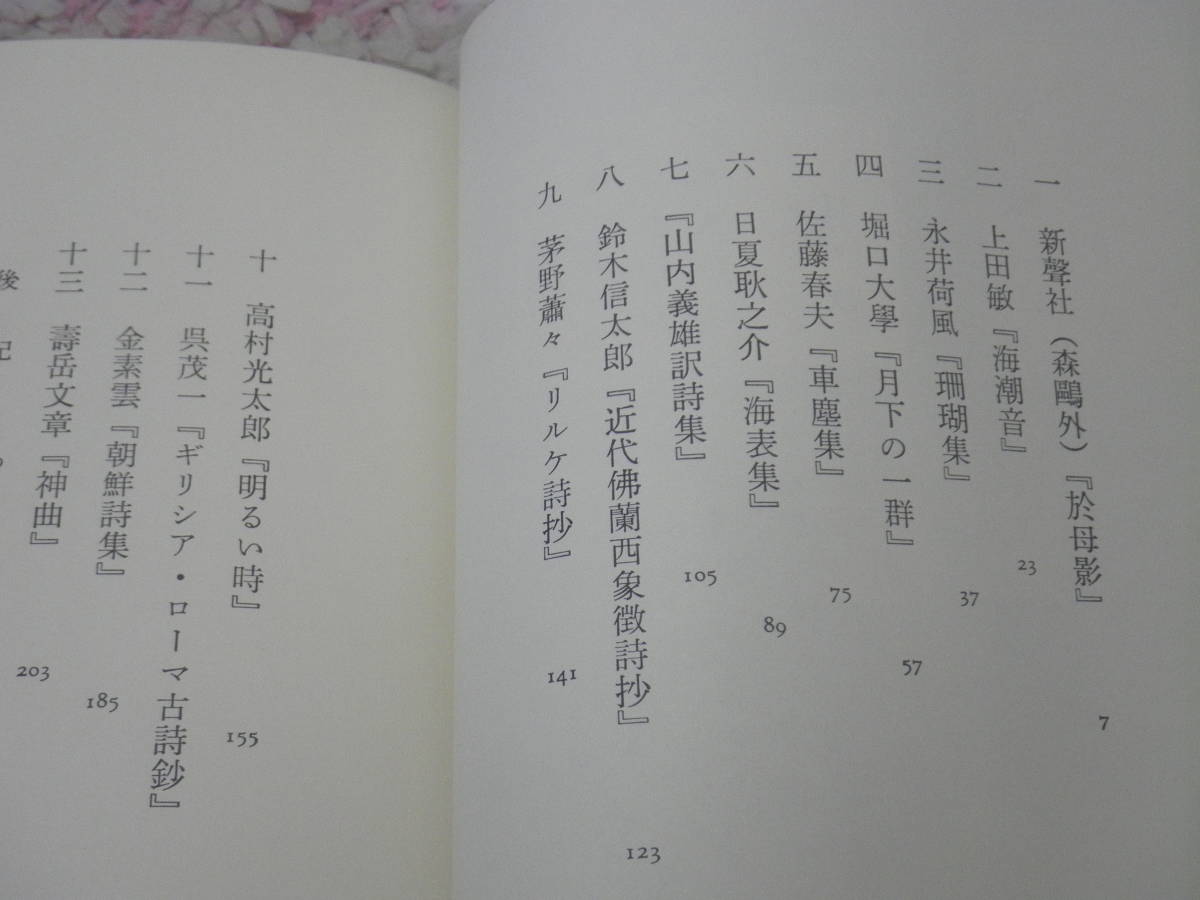 一 新聲社（森鷗外）『於母影』 7
二 上田敏『海潮音』 23
三 永井荷風『珊瑚集』 37
四 堀口大學『月下の一群』 57
五 佐藤春夫『車塵集』 75
六 日夏耿之介『海表集』 89
七 『山内義雄訳詩集』 105
八 鈴木信太郎『近代佛蘭西象徴詩抄』 123
九 茅野蕭々『リルケ詩抄』 141
十 高村光太郎『明るい時』 155
十一 呉茂一『ギリシア・ローマ古詩鈔』
十二 金素雲『朝鮮詩集』 185
十三 壽岳文章『神曲』 203
後記